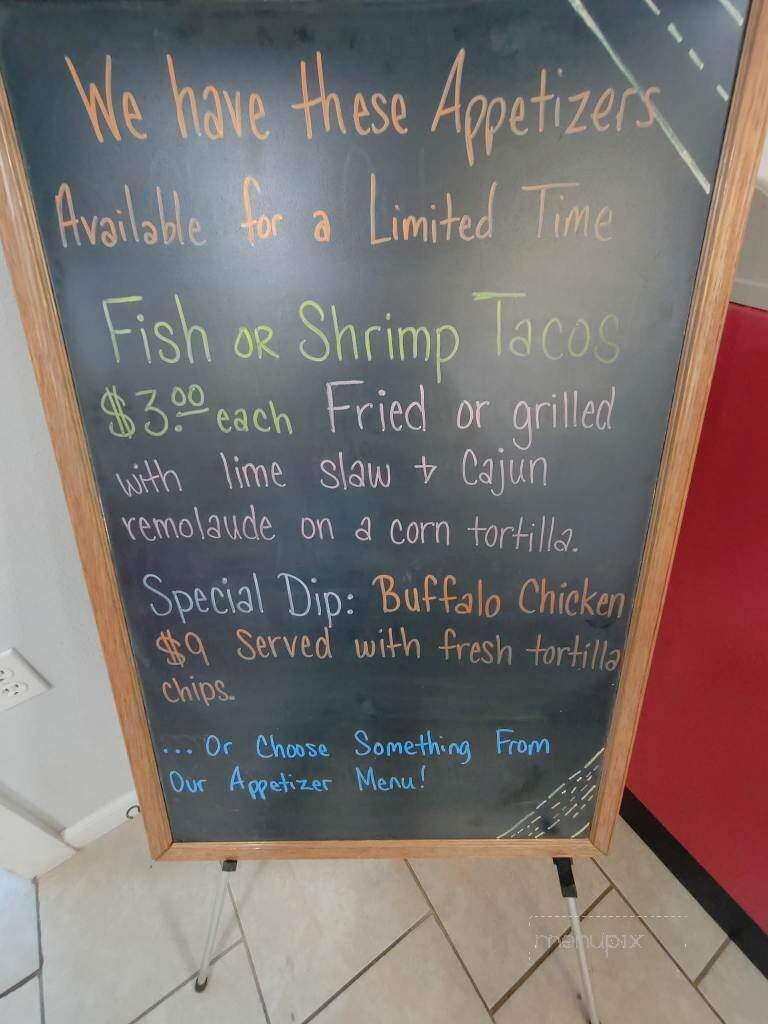 We have these Appetizers
Available for a Limited Time
Fish OR Shrimp Tacos
$3.00 each Fried or grilled
with lime slaw + Cajun
remolaude on a corn tortilla.
Special Dip: Buffalo Chicken
$9 Served with fresh tortilla
chips.
... Or Choose Something From
Our Appetizer Menu!
menupix